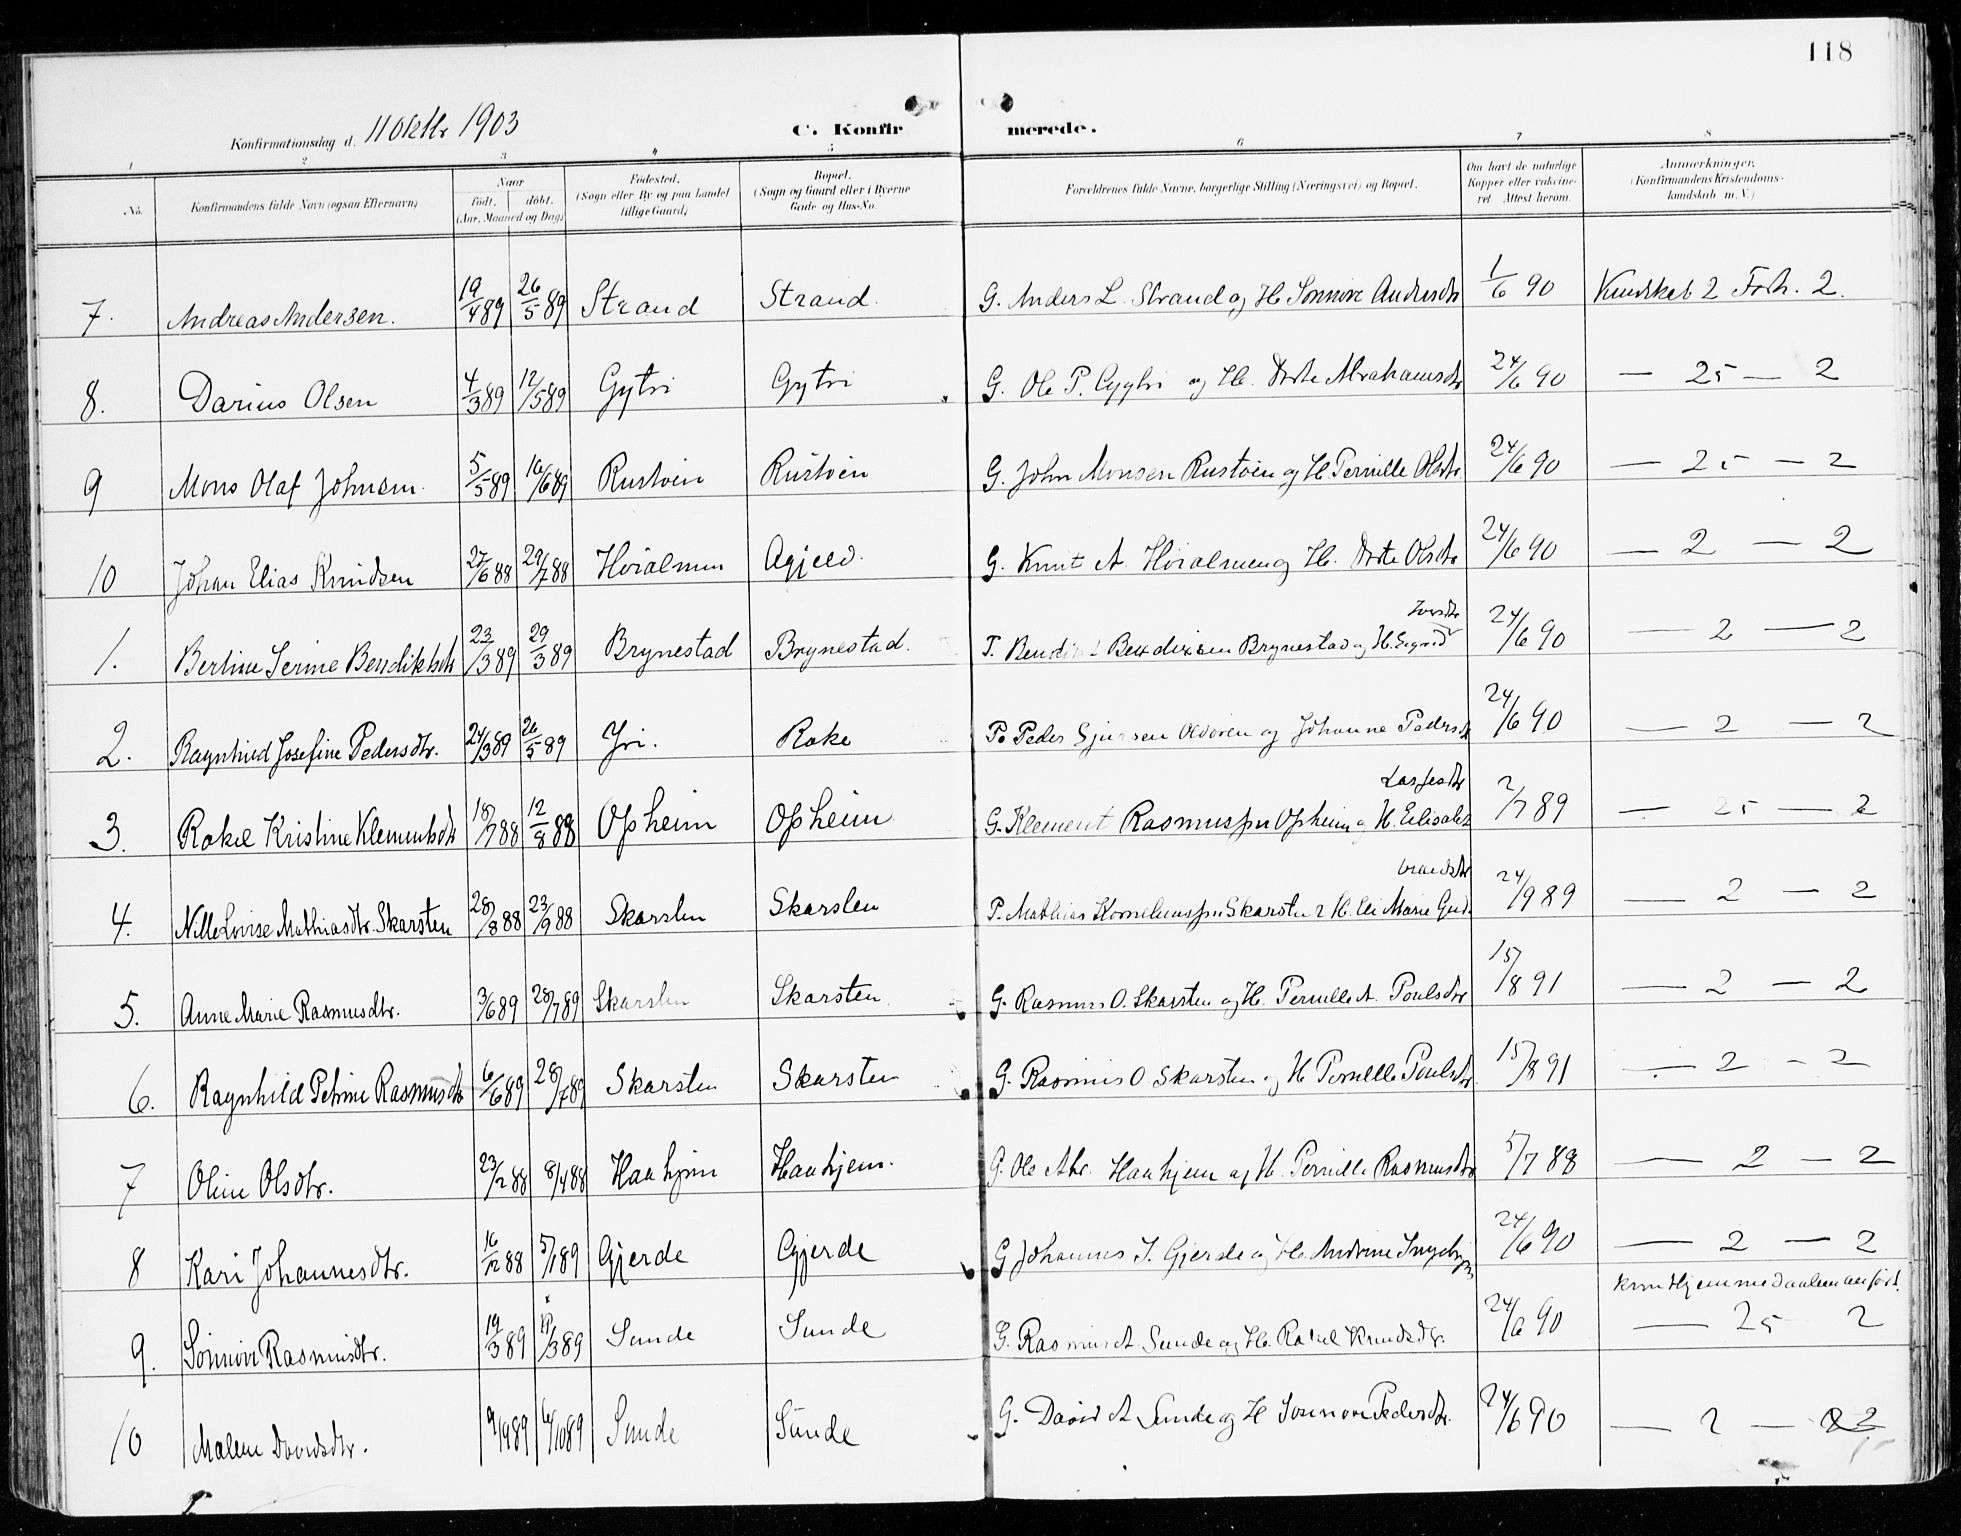 118
Konfirmationsdag d. 11 Oktbr 1903 C. Konfirmerede.
1 2 3 4 5 6 7 8
No. Konfirmandens fulde Navn (ogsaa Efternavn) Naar født. døbt. (Aar, Maaned og Dag) Fødested. (Sogn eller By og paa Landet tillige Gaard) Bopæl. (Sogn og Gaard eller i Byerne Gade og Hus-No. Forældrenes fulde Navne, borgerlige Stilling (Næringsvei) og Bopæl. Om havt de naturlige Kopper eller vakcineret Attest herom. Anmærkninger. (Konfirmandens Kristendomskundskab m. V.)
7. Andreas Andersen. 19/4 89 26/5 89 Strand Strand. G. Anders L. Strand og H. Sønnøve Andersdtr 1/6 90 Kundskab 2 Forh. 2.
8. Darius Olsen 4/3 89 12/5 89 Gytri Gytri G. Ole P. Gytri og H. Dorte Abrahamsdtr 24/6 90 — 25 — 2
9 Mons Olaf Johnsen 5/5 89 16/6 89 Rustøen Rustøen G. John Monsen Rustøen og H. Pernille Olsdtr. 24/6 90 — 25 — 2
10 Johan Elias Knudsen 27/6 88 29/7 88 Høialmen Agjeld. G. Knut A. Høialmen og H. Dorte Olsdtr 24/6 90 — 2 — 2
1. Bertine Serine Bendiktsdtr 23/3 89 29/3 89 Brynestad Brynestad. Bendixsen Brynestad og H. Sigrid Iversdtr 24/6 90 — 2 — 2
2. Ragnhild Josefine Pedersdtr. 24/3 89 26/5 89 Yri. Rake Peder Gjersen Oldøren og Johanne Pedersdtr 24/6 90 — 2 — 2
3. Rakel Kristine Klementsdtr 18/7 88 12/8 88 Opheim Opheim G. Klement Rasmussen Opheim og H. Elisabet Lassesdtr 2/7 89 — 25 — 2
4. Nille Lovise Mathiasdtr. Skarsten 28/8 88 23/9 88 Skarsten Skarsten P. Mathias Korneliussen Skarsten & H. Eli Marie Gudbrandsdtr 24/9 89 — 2 — 2
5. Anne Marie Rasmusdtr. 3/6 89 28/7 89 Skarsten Skarsten. G. Rasmus O. Skarsten og H. Pernille A. Poulsdtr 15/8 91 — 2 — 2
6. Ragnhild Petrine Rasmusdtr 6/6 89 28/7 89 Skarsten Skarsten G. Rasmus O. Skarsten og H Pernille Poulsdtr. 15/8 91 — 2 — 2
7 Oline Olsdtr. 23/2 88 8/4 88 Haahjem Haahjem. G. Ole Abr. Haahjem og H. Pernille Rasmusdtr 5/7 88 — 2 — 2
8 Kari Johannesdtr. 16/12 88 5/1 89 Gjerde Gjerde G Johannes I. Gjerde og H. Andrine 24/6 90 — 2 — 2
9. Sønnøve Rasmusdtr. 19/3 89 19/3 89 Sunde Sunde G. Rasmus A. Sunde og H. Rakel Knudsdtr. 24/6 90 kun Hjemmedaaben anført. — 25 2
10 Malene Davidsdtr. 9/9 89 6/10 89 Sunde Sunde G. David A Sunde og H Sønnøve Pedersdtr. 24/6 90 — 2 — 2